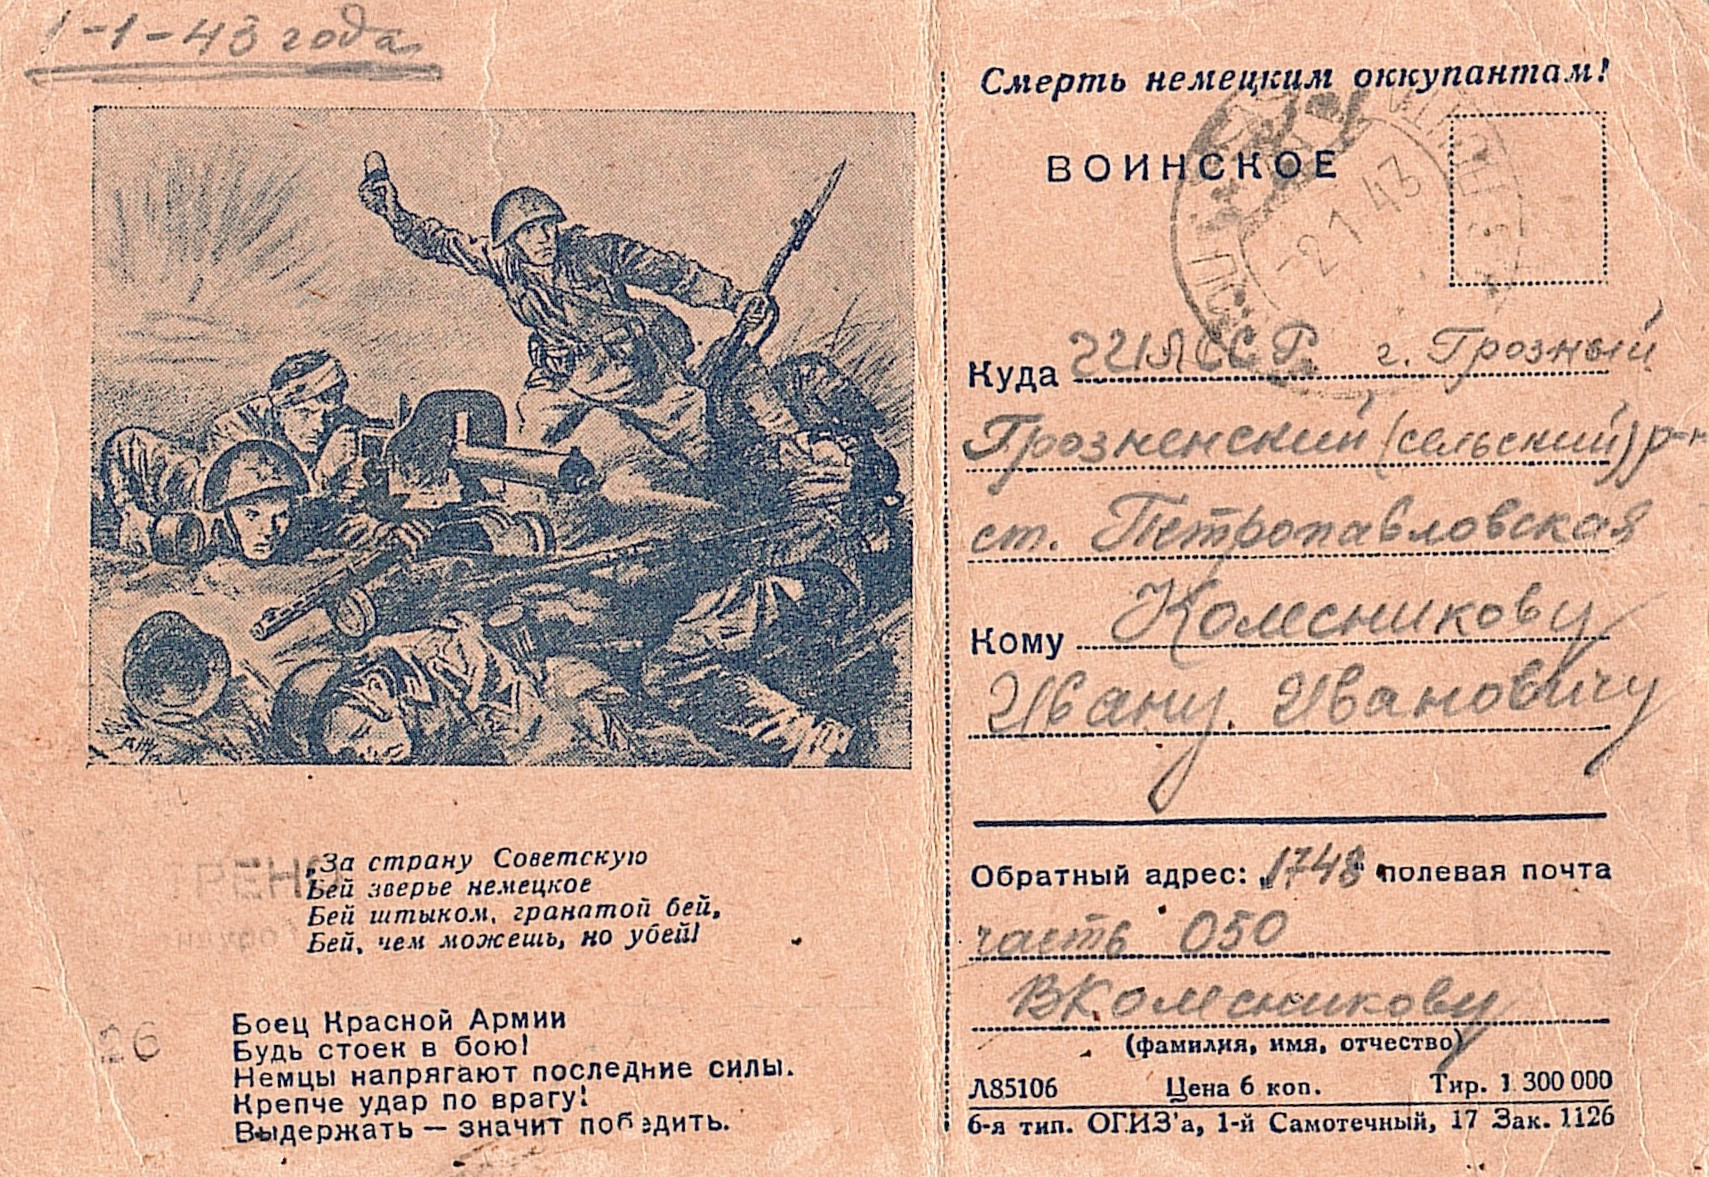 1-1-43 года
„За страну Советскую
Бей зверье немецкое
Бей штыком, гранатой бей,
Бей, чем можешь, но убей!
Боец Красной Армии
Будь стоек в бою!
Немцы напрягают последние силы.
Крепче удар по врагу!
Выдержать — значит победить.
26
Смерть немецким оккупантам!
ВОИНСКОЕ
-2 1 43
Куда ЧИАССР г. Грозный
Грозненский (сельский) р-н
ст. Петропавловская
Кому Колесникову
Ивану Ивановичу
Обратный адрес: 1748 полевая почта
часть 050
В Колесникову
(фамилия, имя, отчество)
Л85106 Цена 6 коп. Тир. 1 300 000
6-я тип. ОГИЗ'а, 1-й Самотечный, 17 Зак. 1126